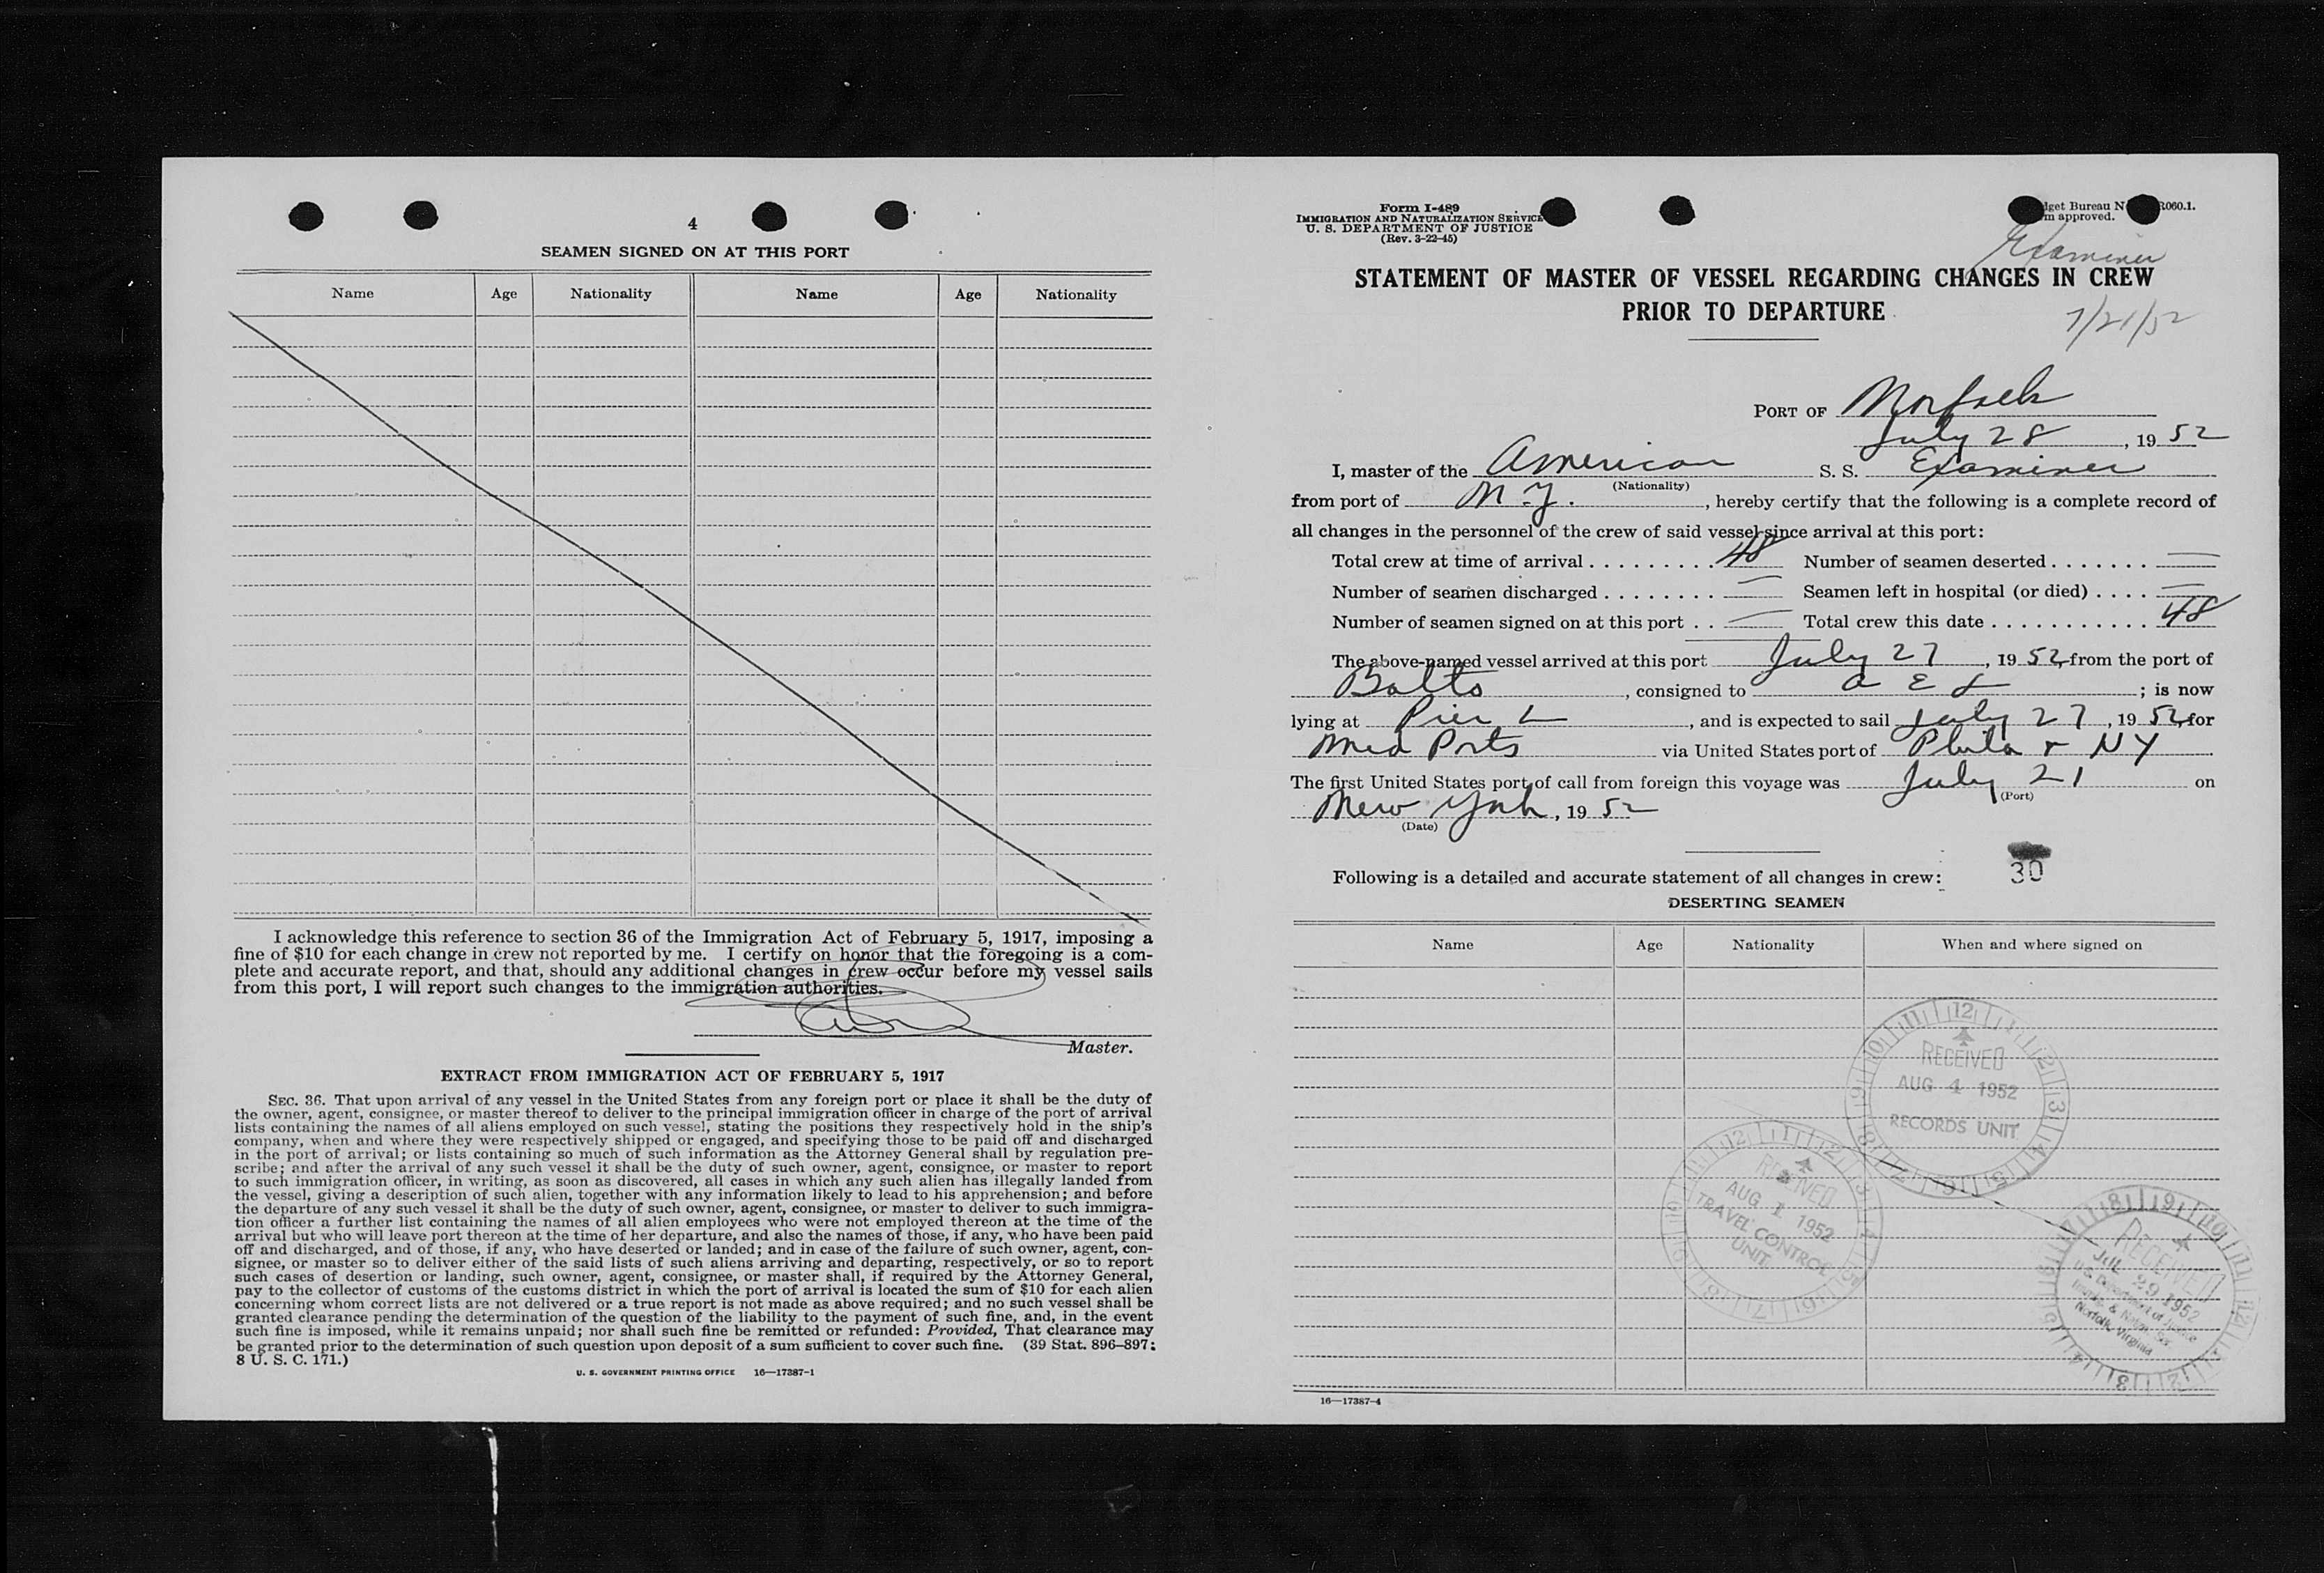 4
SEAMEN SIGNED ON AT THIS PORT
Name Age Nationality Name Age Nationality
I acknowledge this reference to section 36 of the Immigration Act of February 5, 1917, imposing a
fine of $10 for each change in crew not reported by me. I certify on honor that the foregoing is a com-
plete and accurate report, and that, should any additional changes in crew occur before my vessel sails
from this port, I will report such changes to the immigration authorities.
Master.
EXTRACT FROM IMMIGRATION ACT OF FEBRUARY 5, 1917
SEC. 36. That upon arrival of any vessel in the United States from any foreign port or place it shall be the duty of
the owner, agent, consignee, or master thereof to deliver to the principal immigration officer in charge of the port of arrival
lists containing the names of all aliens employed on such vessel, stating the positions they respectively hold in the ship's
company, when and where they were respectively shipped or engaged, and specifying those to be paid off and discharged
in the port of arrival; or lists containing so much of such information as the Attorney General shall by regulation pre-
scribe; and after the arrival of any such vessel it shall be the duty of such owner, agent, consignee, or master to report
to such immigration officer, in writing, as soon as discovered, all cases in which any such alien has illegally landed from
the vessel, giving a description of such alien, together with any information likely to lead to his apprehension; and before
the departure of any such vessel it shall be the duty of such owner, agent, consignee, or master to deliver to such immigra-
tion officer a further list containing the names of all alien employees who were not employed thereon at the time of the
arrival but who will leave port thereon at the time of her departure, and also the names of those, if any, who have been paid
off and discharged, and of those, if any, who have deserted or landed; and in case of the failure of such owner, agent, con-
signee, or master so to deliver either of the said lists of such aliens arriving and departing, respectively, or so to report
such cases of desertion or landing, such owner, agent, consignee, or master shall, if required by the Attorney General,
pay to the collector of customs of the customs district in which the port of arrival is located the sum of $10 for each alien
concerning whom correct lists are not delivered or a true report is not made as above required; and no such vessel shall be
granted clearance pending the determination of the question of the liability to the payment of such fine, and, in the event
such fine is imposed, while it remains unpaid; nor shall such fine be remitted or refunded: Provided, That clearance may
be granted prior to the determination of such question upon deposit of a sum sufficient to cover such fine. (39 Stat. 896-897;
8 U. S. C. 171.)
U. S. GOVERNMENT PRINTING OFFICE 16—17387-1
Form I-489
IMMIGRATION AND NATURALIZATION SERVICE
U. S. DEPARTMENT OF JUSTICE
(Rev. 3-22-45)
dget Bureau N R060.1.
m approved.
Examiner
STATEMENT OF MASTER OF VESSEL REGARDING CHANGES IN CREW
PRIOR TO DEPARTURE
7/21/52
PORT OF Norfolk
July 28, 19 52
I, master of the American S. S. Examiner
(Nationality)
from port of N.Y., hereby certify that the following is a complete record of
all changes in the personnel of the crew of said vessel since arrival at this port:
Total crew at time of arrival . . . . . . . . . 48 Number of seamen deserted . . . . . . . —
Number of seamen discharged . . . . . . . . — Seamen left in hospital (or died) . . . . —
Number of seamen signed on at this port . . — Total crew this date . . . . . . . . . . . 48
The above-named vessel arrived at this port July 27, 19 52, from the port of
Balto, consigned to A E L; is now
lying at Pier L, and is expected to sail July 27, 19 52, for
Med Ports via United States port of Phila + NY
The first United States port of call from foreign this voyage was July 21 on
(Port)
New York, 19 52
(Date)
30
Following is a detailed and accurate statement of all changes in crew:
DESERTING SEAMEN
Name Age Nationality When and where signed on
RECEIVED
AUG 4 1952
RECORDS UNIT
RECEIVED
AUG 1 1952
TRAVEL CONTROL
UNIT
RECEIVED
JUL 29 1952
U.S. Department of Justice
Norfolk, Virginia
16—17387-4